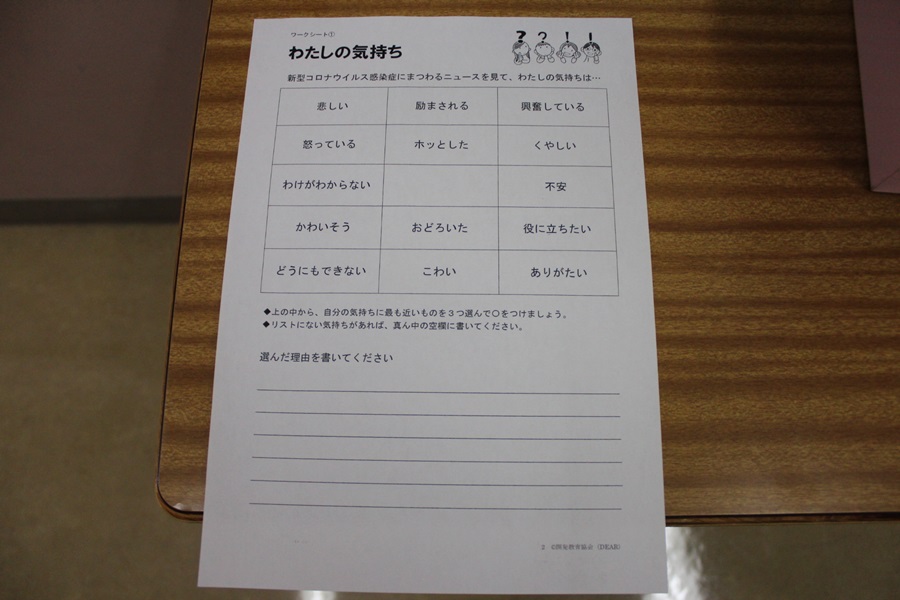 ワークシート①
わたしの気持ち
? ? ! !
新型コロナウイルス感染症にまつわるニュースを見て、わたしの気持ちは…
悲しい 励まされる 興奮している
怒っている ホッとした くやしい
わけがわからない 不安
かわいそう おどろいた 役に立ちたい
どうにもできない こわい ありがたい
◆上の中から、自分の気持ちに最も近いものを３つ選んで○をつけましょう。
◆リストにない気持ちがあれば、真ん中の空欄に書いてください。
選んだ理由を書いてください
2 ©開発教育協会（DEAR）